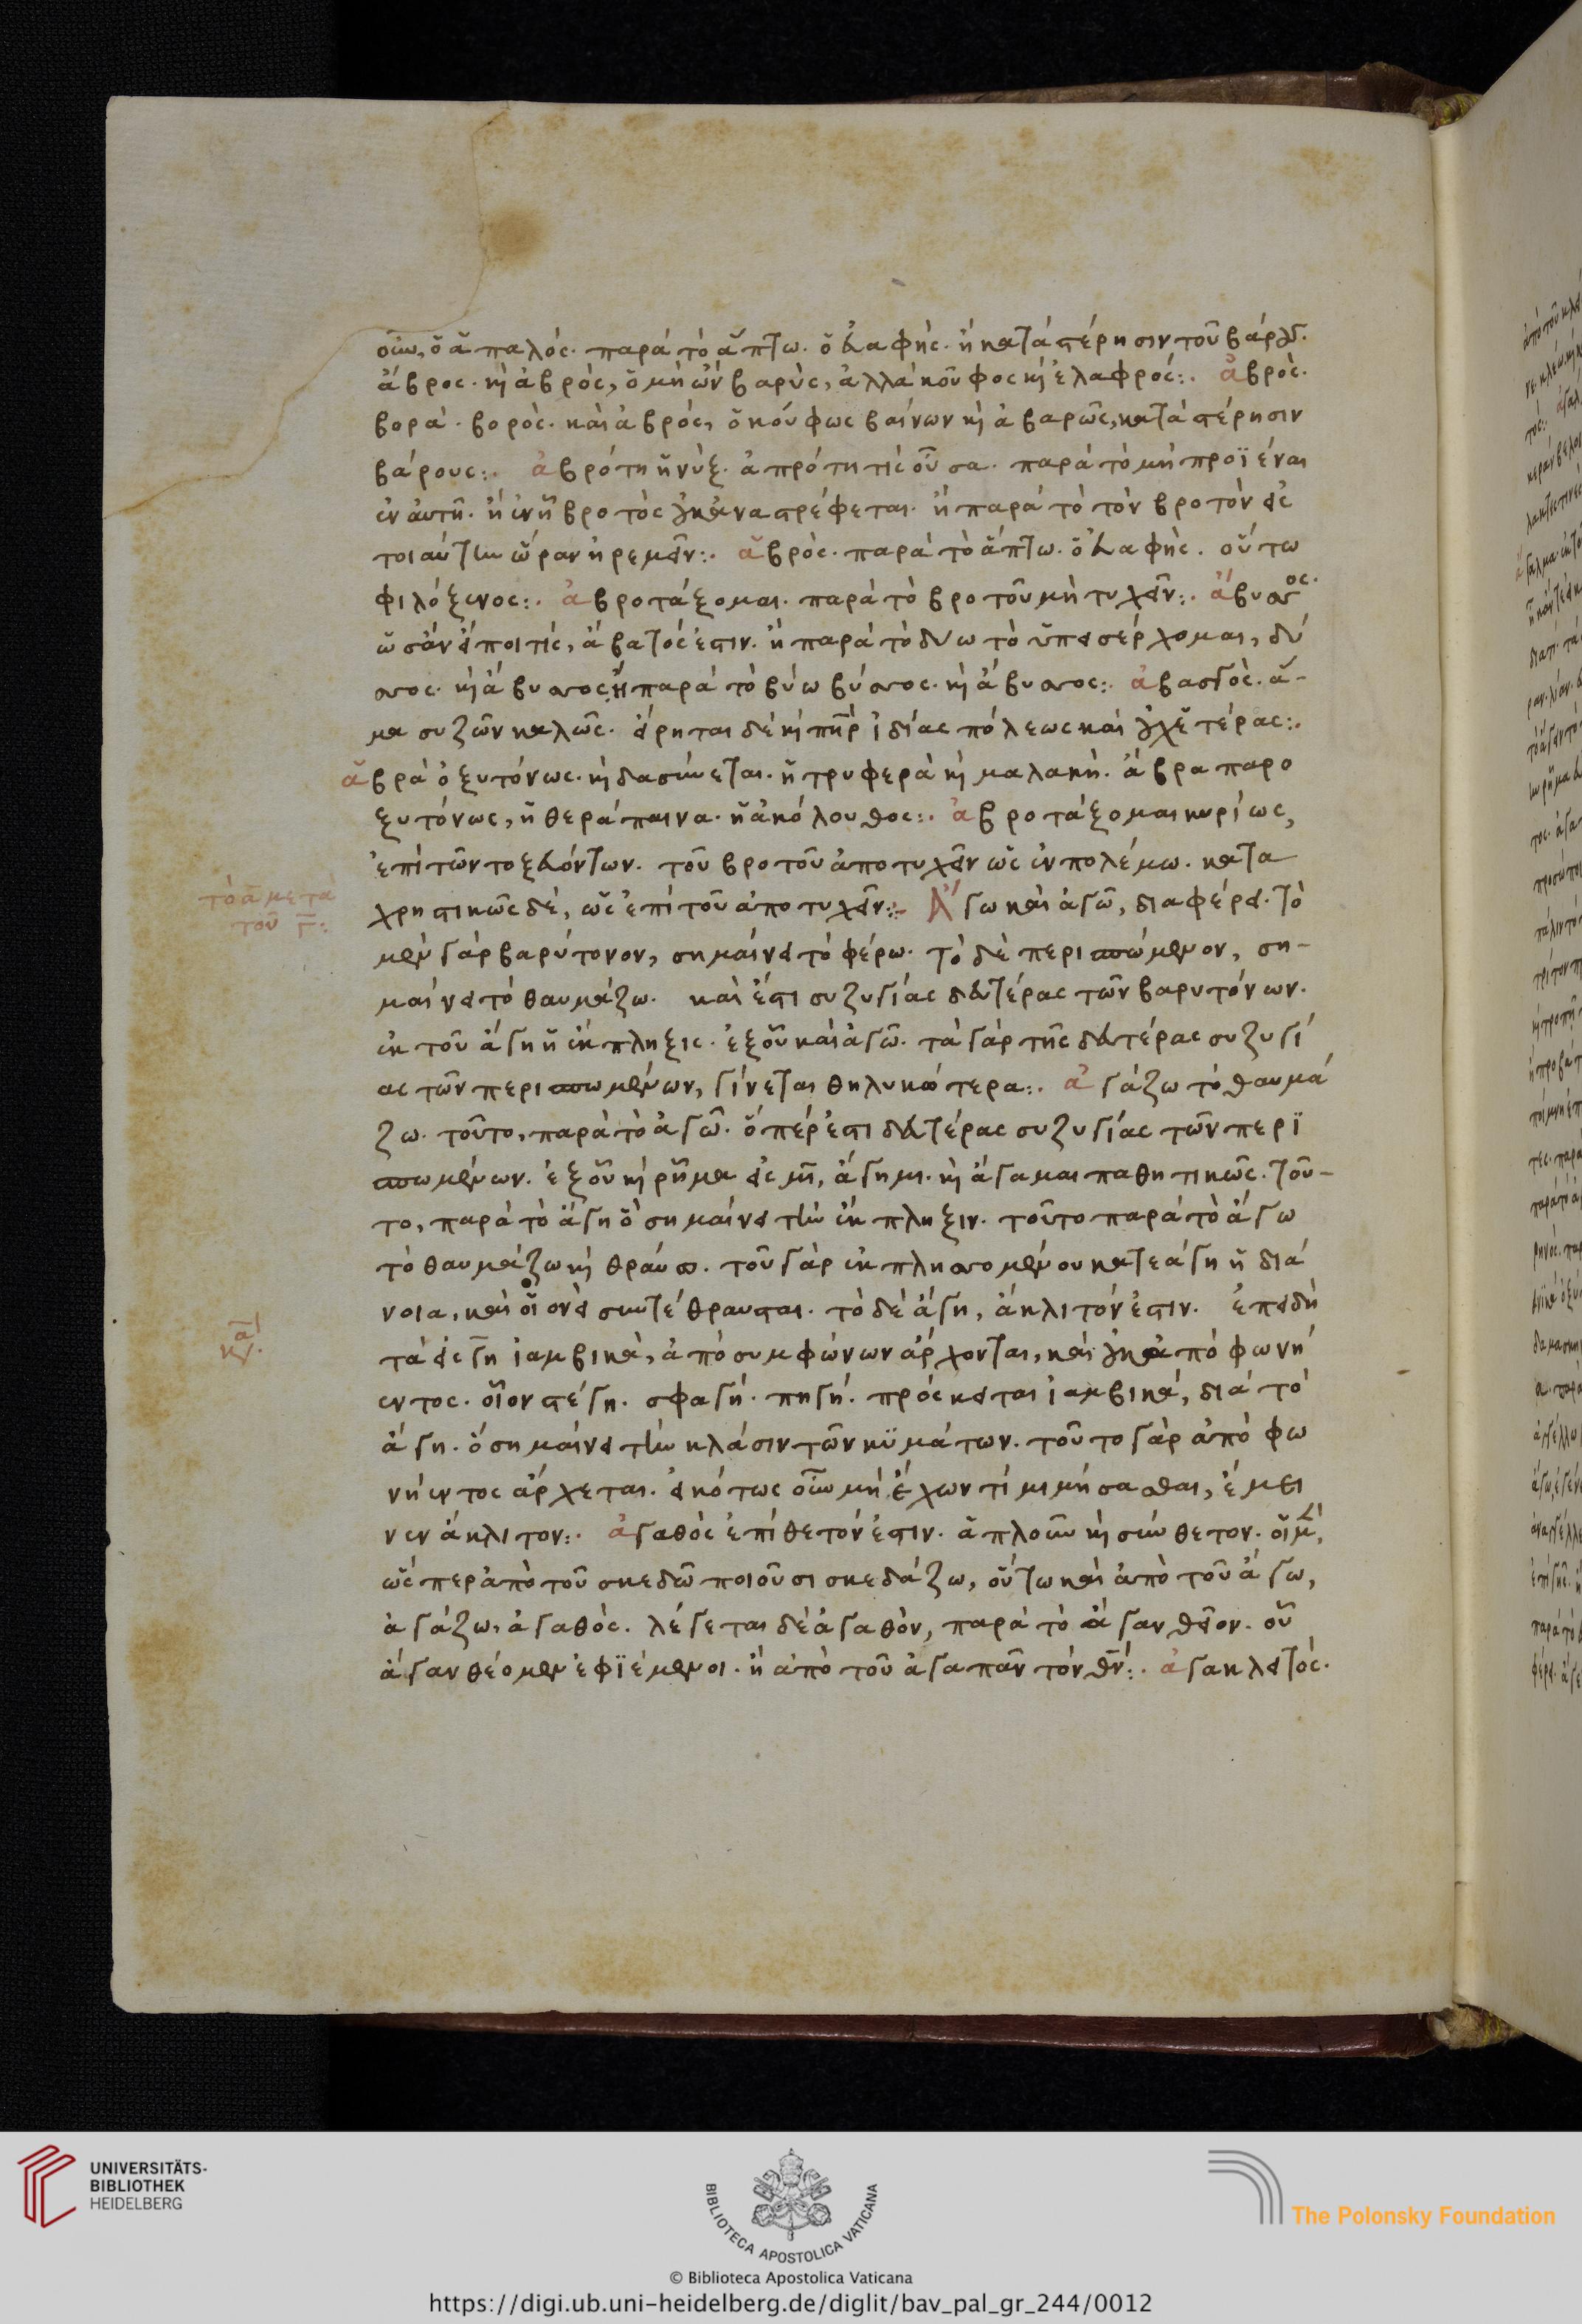 οἱων, ὁ ἁπαλός. παρὰ τὸ ἅπτω. ὁ εὐαφής. ἢ κατὰ στέρησιν τοῦ βάρου.
ἄβρος. καὶ ἁβρὸς, ὁ μὴ ὢν βαρὺς, ἀλλὰ κοῦφος καὶ ἐλαφρός:. ἁβρὸς.
βορά. βορὸς. καὶ ἁβρός, ὁ κούφως βαίνων καὶ ἀβαρῶς, κατὰ στέρησιν
βάρους:. ἀβρότη ἡ νύξ. ἀπρότη τὶς οὖσα. παρὰ τὸ μὴ προϊέναι
ἐν αὐτῆ. ἢ ἐν ἧ βροτὸς οὐκ ἀναστρέφεται. ἢ παρὰ τὸ τὸν βροτὸν εἰς
τοιαύτην ὥραν ἠρεμεῖν:. ἁβρὸς. παρὰ τὸ ἅπτω. ὁ εὐαφής. οὕτω
φιλόξενος:. ἀβροτάξομαι. παρὰ τὸ βροτοῦ μὴ τυχεῖν:. ἄβυσσος.
ὡσὰν εἴποι τίς, ἄβατός ἐστιν. ἢ παρὰ τὸ δύω τὸ ὑπεισέρχομαι, δύ
σσος. καὶ ἄβυσσος ἢ παρὰ τὸ βύω βύσσος. καὶ ἄβυσσος:. ἀβαστός. ἅ-
μα συζῶν καλῶς. εἴρηται δὲ καὶ πῆρ ἰδίας πόλεως καὶ οὐχ ἑτέρας:.
ἁβρὰ ὀξυτόνως. καὶ δασύνεται. ἡ τρυφερὰ καὶ μαλακή. ἄβρα παρο
ξυτόνως, ἡ θεράπαινα. ἡ ἀκόλουθος:. ἀβροτάξομαι κυρίως,
ἐπὶ τῶν τοξευόντων. τοῦ βροτοῦ ἀποτυχεῖν ὡς ἐν πολέμω. κατα
χρηστικῶς δὲ, ὡς ἐπὶ τοῦ ἀποτυχεῖν:. Ἄγω καὶ ἀγῶ, διαφέρει. τὸ
τὸ α μετὰ
τοῦ γ:
μὲν γὰρ βαρύτονον, σημαίνει τὸ φέρω. τὸ δὲ περισπώμενον, ση-
μαίνει τὸ θαυμάζω. καὶ ἔστι συζυγίας δευτέρας τῶν βαρυτόνων.
ἐκ τοῦ ἄγη ἡ ἔκπληξις. ἐξ οὗ καὶ ἀγῶ. τὰ γὰρ τῆς δευτέρας συζυγί
ας τῶν περισπωμένων, γίνεται θηλυκώτερα:. ἀγάζω τὸ θαυμά
ζω. τοῦτο, παρὰ τὸ ἀγῶ. ὅπέρ ἐστι δευτέρας συζυγίας τῶν περι
σπωμένων. ἐξ οὗ καὶ ῥῆμα εἰς μι, ἄγημι. καὶ ἄγαμαι παθητικῶς. τοῦ-
το, παρὰ τὸ ἄγη ὃ σημαίνει τὴν ἔκπληξιν. τοῦτο παρὰ τὸ ἄγω
τὸ θαυμάζω καὶ θραύω. τοῦ γὰρ ἐκπλησσομένου κατεάγη ἡ διά
νοια, καὶ οἱονεὶ συντέθραυσται. τὸ δὲ ἄγη, ἄκλιτόν ἐστιν. ἐπειδὴ
τὰ εἰς γη ἰαμβικὰ, ἀπὸ συμφώνων ἄρχονται, καὶ οὐκ ἀπὸ φωνή
εντος. οἷον στέγη. σφαγή. πηγή. πρόσκειται ἰαμβικά, διὰ τὸ
ἄγη. ὃ σημαίνει τὴν κλάσιν τῶν κυμάτων. τοῦτο γὰρ ἀπὸ φω
νήεντος ἄρχεται. εἰκότως οὖν μὴ ἔχων τί μιμήσασθαι, ἔμει
νεν ἄκλιτον:. ἀγαθὸς ἐπίθετόν ἐστιν. ἁπλοῦν καὶ σύνθετον.
ὥσπερ ἀπὸ τοῦ σκεδῶ ποιοῦσι σκεδάζω, οὕτω καὶ ἀπὸ τοῦ ἄγω,
ἀγάζω, ἀγαθὸς. λέγεται δὲ ἀγαθὸν, παρὰ τὸ ἄγαν θεῖον. οὗ
ἄγαν θέομεν ἐφϊέμενοι. ἢ ἀπὸ τοῦ ἀγαπᾶν τὸν θν:. ἀγακλειτός.
UNIVERSITÄTS-
BIBLIOTHEK
HEIDELBERG
BIBLIOTECA APOSTOLICA VATICANA
The Polonsky Foundation
© Biblioteca Apostolica Vaticana
https://digi.ub.uni-heidelberg.de/diglit/bav_pal_gr_244/0012